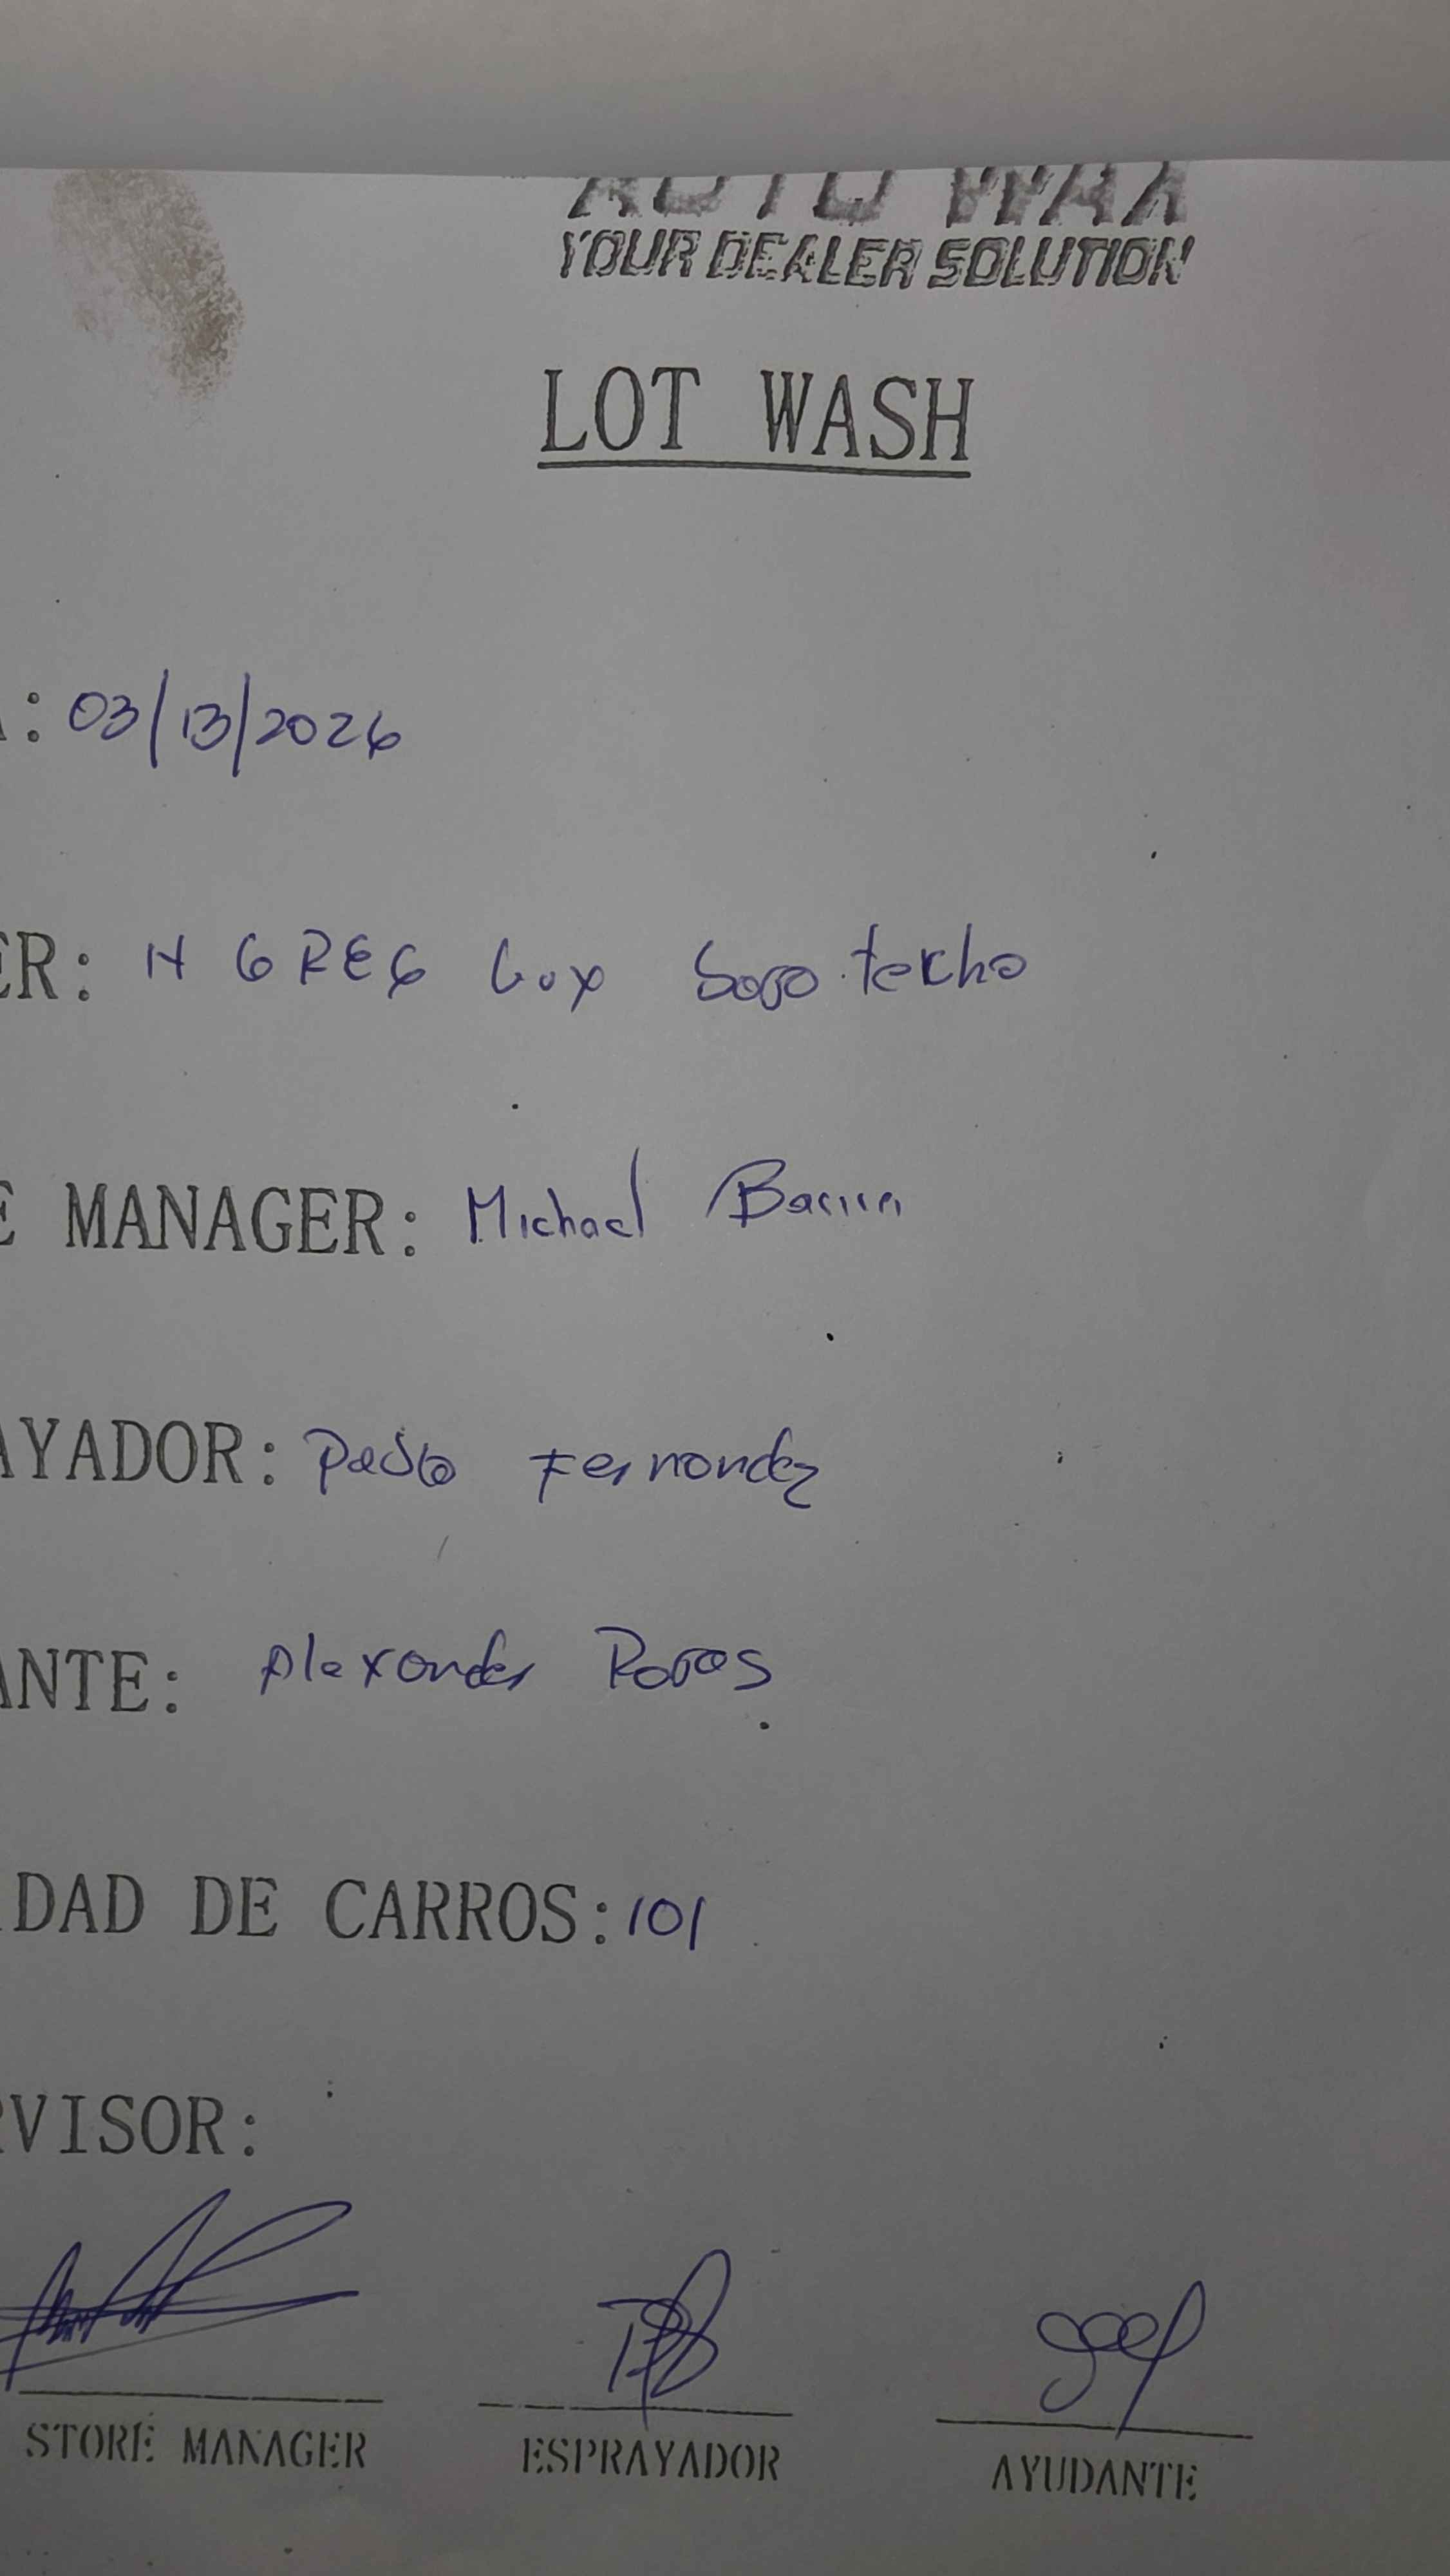 AUTO WAX
YOUR DEALER SOLUTION
LOT WASH
A: 03/13/2026
ER: H GREG Lux
E MANAGER: Michael
AYADOR: Pablo Fernandez
ANTE: Alexander Rojas
DAD DE CARROS: 101
RVISOR:
STORE MANAGER ESPRAYADOR AYUDANTE